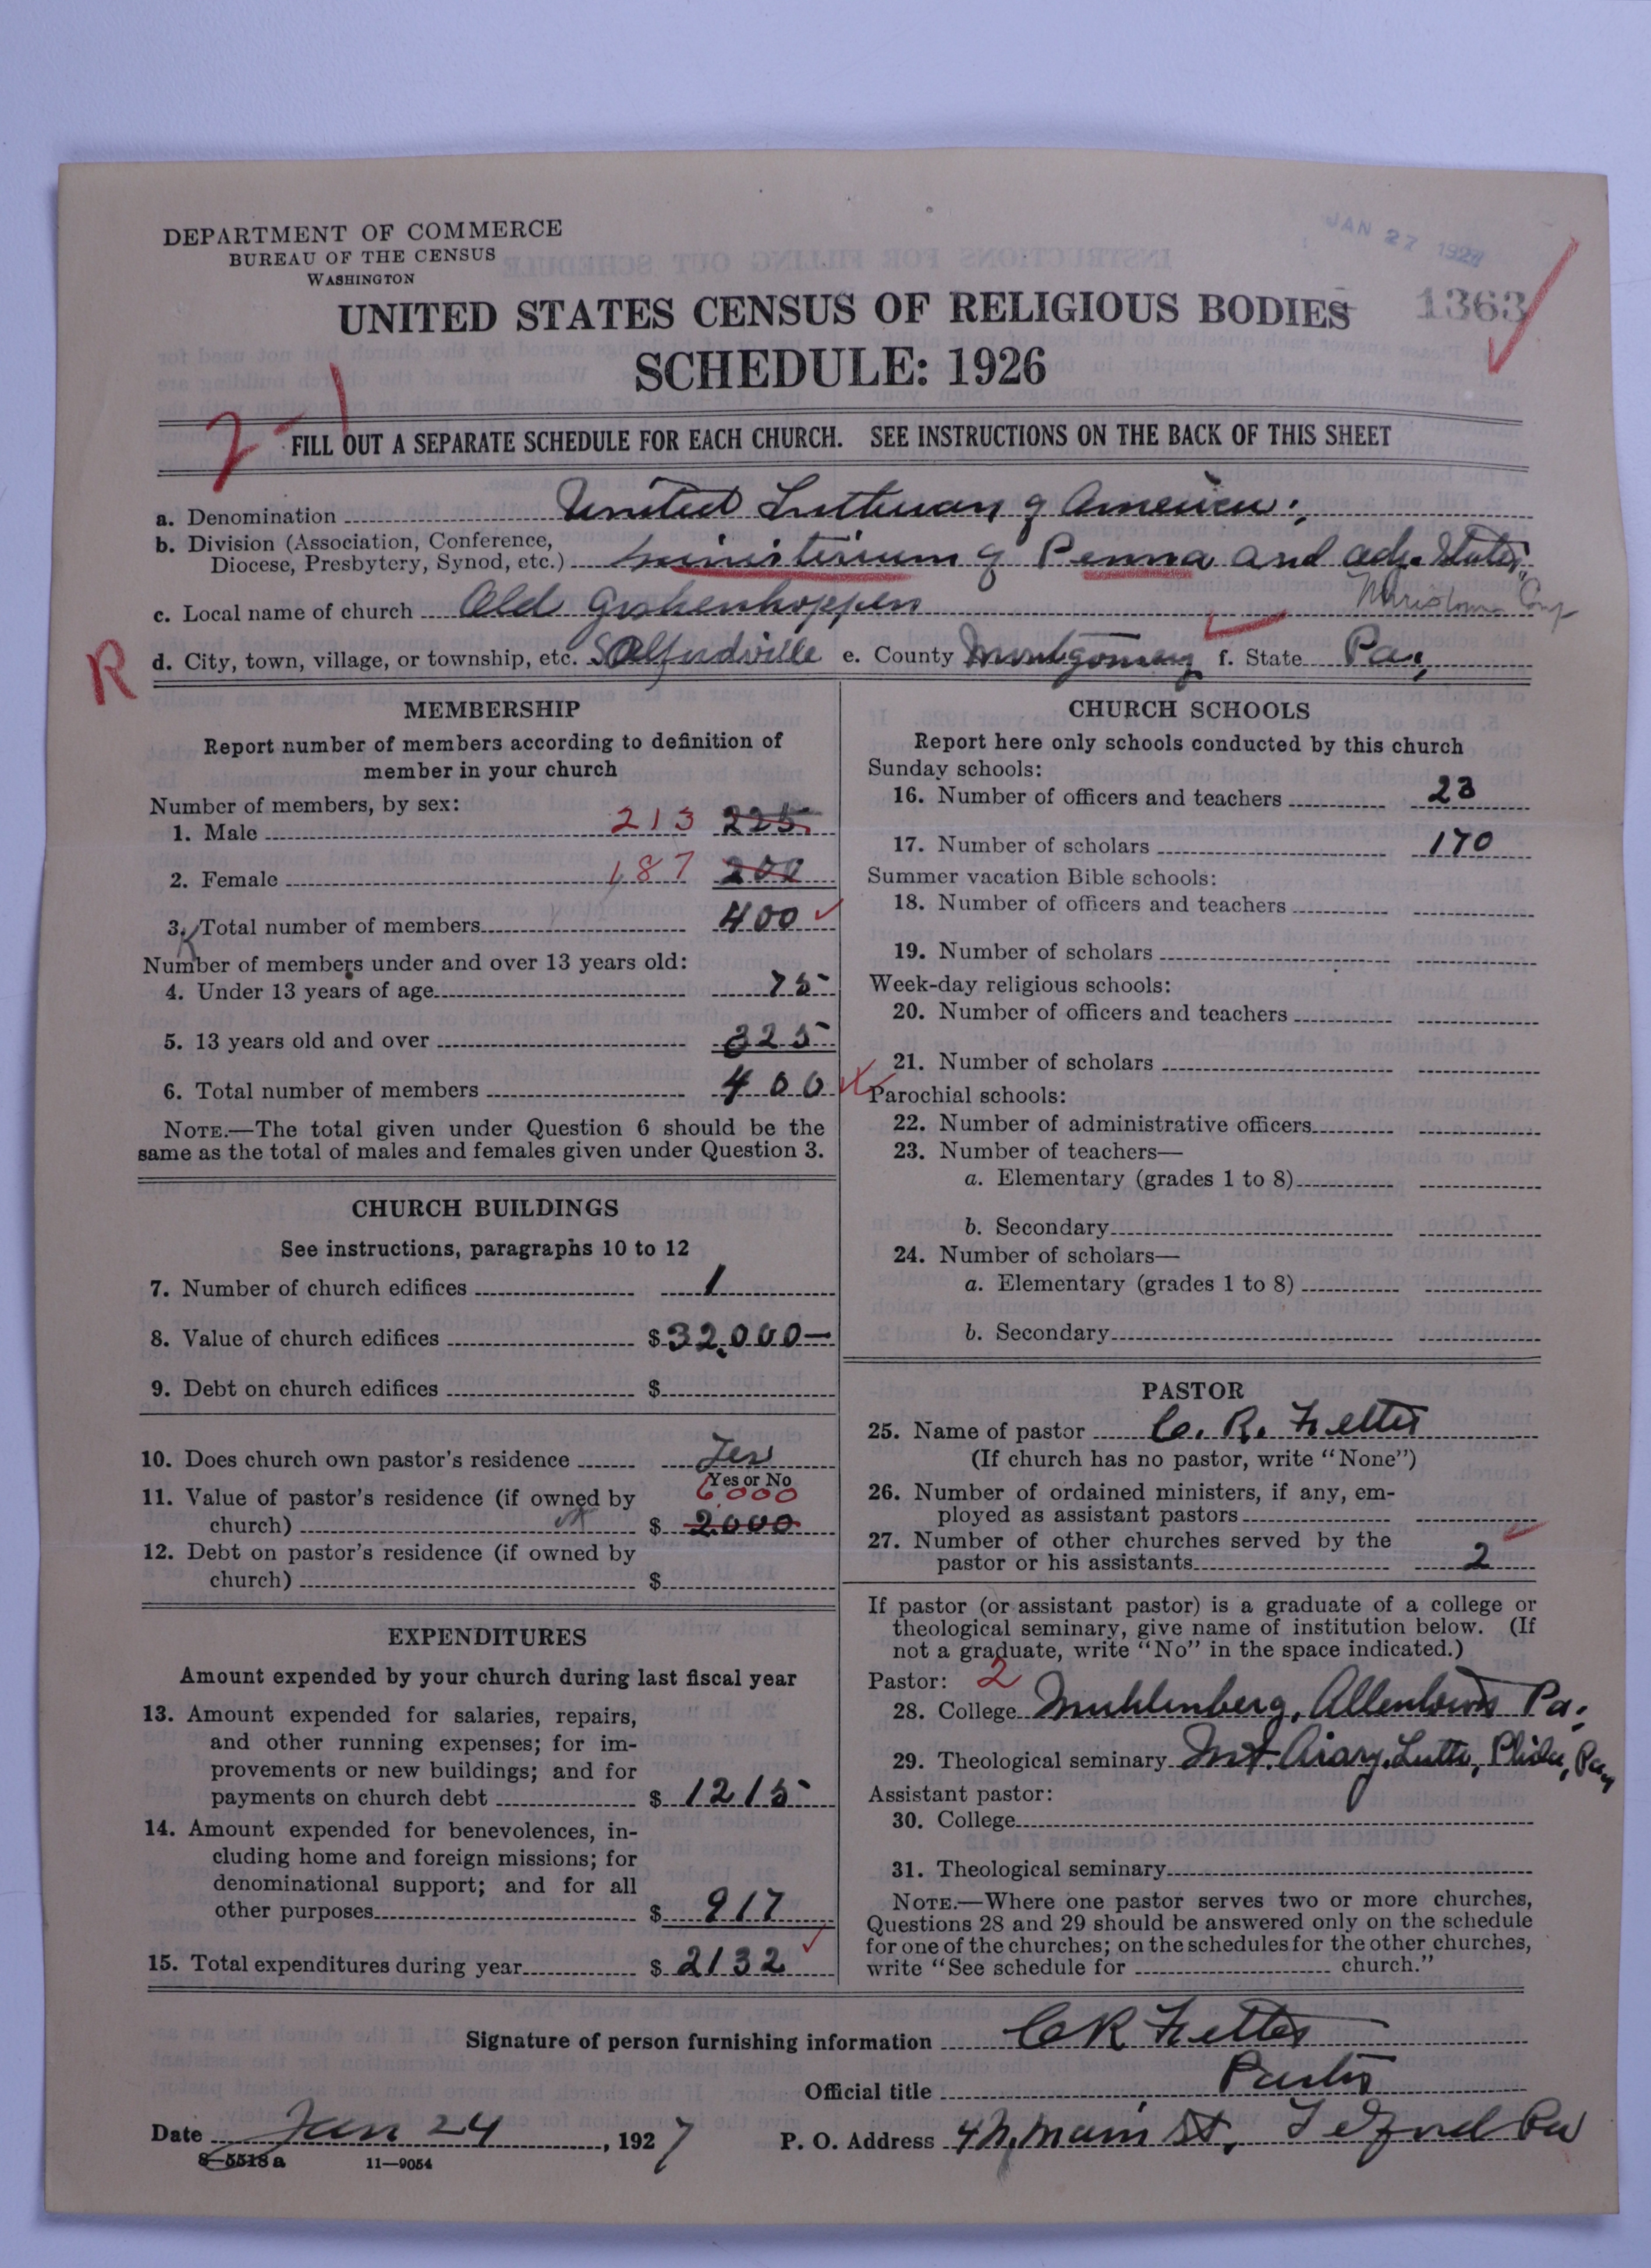 JAN 27 1927
DEPARTMENT OF COMMERCE
BUREAU OF THE CENSUS
WASHINGTON
UNITED STATES CENSUS OF RELIGIOUS BODIES 1363
SCHEDULE: 1926
2-1
FILL OUT A SEPARATE SCHEDULE FOR EACH CHURCH. SEE INSTRUCTIONS ON THE BACK OF THIS SHEET
a. Denomination United Lutheran of America.
b. Division (Association, Conference,
Diocese, Presbytery, Synod, etc.) Ministerium of Penna and adj. States
c. Local name of church Old Goshenhoppen
R d. City, town, village, or township, etc. Salfordville e. County Montgomery f. State Pa.
MEMBERSHIP
Report number of members according to definition of
member in your church
Number of members, by sex:
1. Male 213 225
2. Female 187 200
3. Total number of members 400
Number of members under and over 13 years old:
4. Under 13 years of age 75
5. 13 years old and over 325
6. Total number of members 400
NOTE.—The total given under Question 6 should be the
same as the total of males and females given under Question 3.
CHURCH BUILDINGS
See instructions, paragraphs 10 to 12
7. Number of church edifices 1
8. Value of church edifices $32,000—
9. Debt on church edifices $
10. Does church own pastor's residence Yes
Yes or No
11. Value of pastor's residence (if owned by 6000
church) $ 2000
12. Debt on pastor's residence (if owned by
church) $
EXPENDITURES
Amount expended by your church during last fiscal year
13. Amount expended for salaries, repairs,
and other running expenses; for im-
provements or new buildings; and for
payments on church debt $ 1215
14. Amount expended for benevolences, in-
cluding home and foreign missions; for
denominational support; and for all
other purposes $ 917
15. Total expenditures during year $ 2132
CHURCH SCHOOLS
Report here only schools conducted by this church
Sunday schools:
16. Number of officers and teachers 23
17. Number of scholars 170
Summer vacation Bible schools:
18. Number of officers and teachers
19. Number of scholars
Week-day religious schools:
20. Number of officers and teachers
21. Number of scholars
Parochial schools:
22. Number of administrative officers
23. Number of teachers—
a. Elementary (grades 1 to 8)
b. Secondary
24. Number of scholars—
a. Elementary (grades 1 to 8)
b. Secondary
PASTOR
25. Name of pastor C. R. Fetter
(If church has no pastor, write "None")
26. Number of ordained ministers, if any, em-
ployed as assistant pastors
27. Number of other churches served by the
pastor or his assistants 2
If pastor (or assistant pastor) is a graduate of a college or
theological seminary, give name of institution below. (If
not a graduate, write "No" in the space indicated.)
Pastor: 2
28. College Muhlenberg, Allentown Pa.
29. Theological seminary Mt. Airy, Luth, Phila, Pa,
Assistant pastor:
30. College
31. Theological seminary
NOTE.—Where one pastor serves two or more churches,
Questions 28 and 29 should be answered only on the schedule
for one of the churches; on the schedules for the other churches,
write "See schedule for church."
Signature of person furnishing information CR Fetter
Official title Pastor
Date Jan 24, 1927 P. O. Address 4 N. Main St, Telford Pa
8—5518a 11—9054